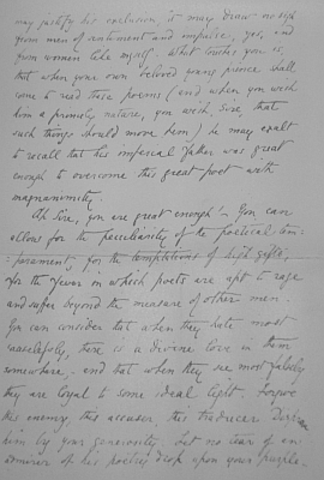 may justify his exclusion, it may draw no sigh
from men of sentiment and impulse, yes, and
from women like myself. What touches you is,
that when your own beloved young prince shall
come to read these poems (and when you wish
him a princely nature, you wish, Sire, that
such things should move him) he may exalt
to recall that his imperial father was great
enough to overcome this great poet with
magnanimity.
Ah Sire, you are great enough! You can
allow for the peculiarity of the poetical tem-
perament, for the temptations of high gifts,
for the fever in which poets are apt to rage
and suffer beyond the measure of other men.
You can consider that when they hate most
causelessly, there is a divine love in them
somewhere, and that when they see most falsely
they are loyal to some ideal light. Forgive
this enemy, this accuser, this traducer. Disprove
him by your generosity. Let no tear of an
admirer of his poetry drop upon your purple.